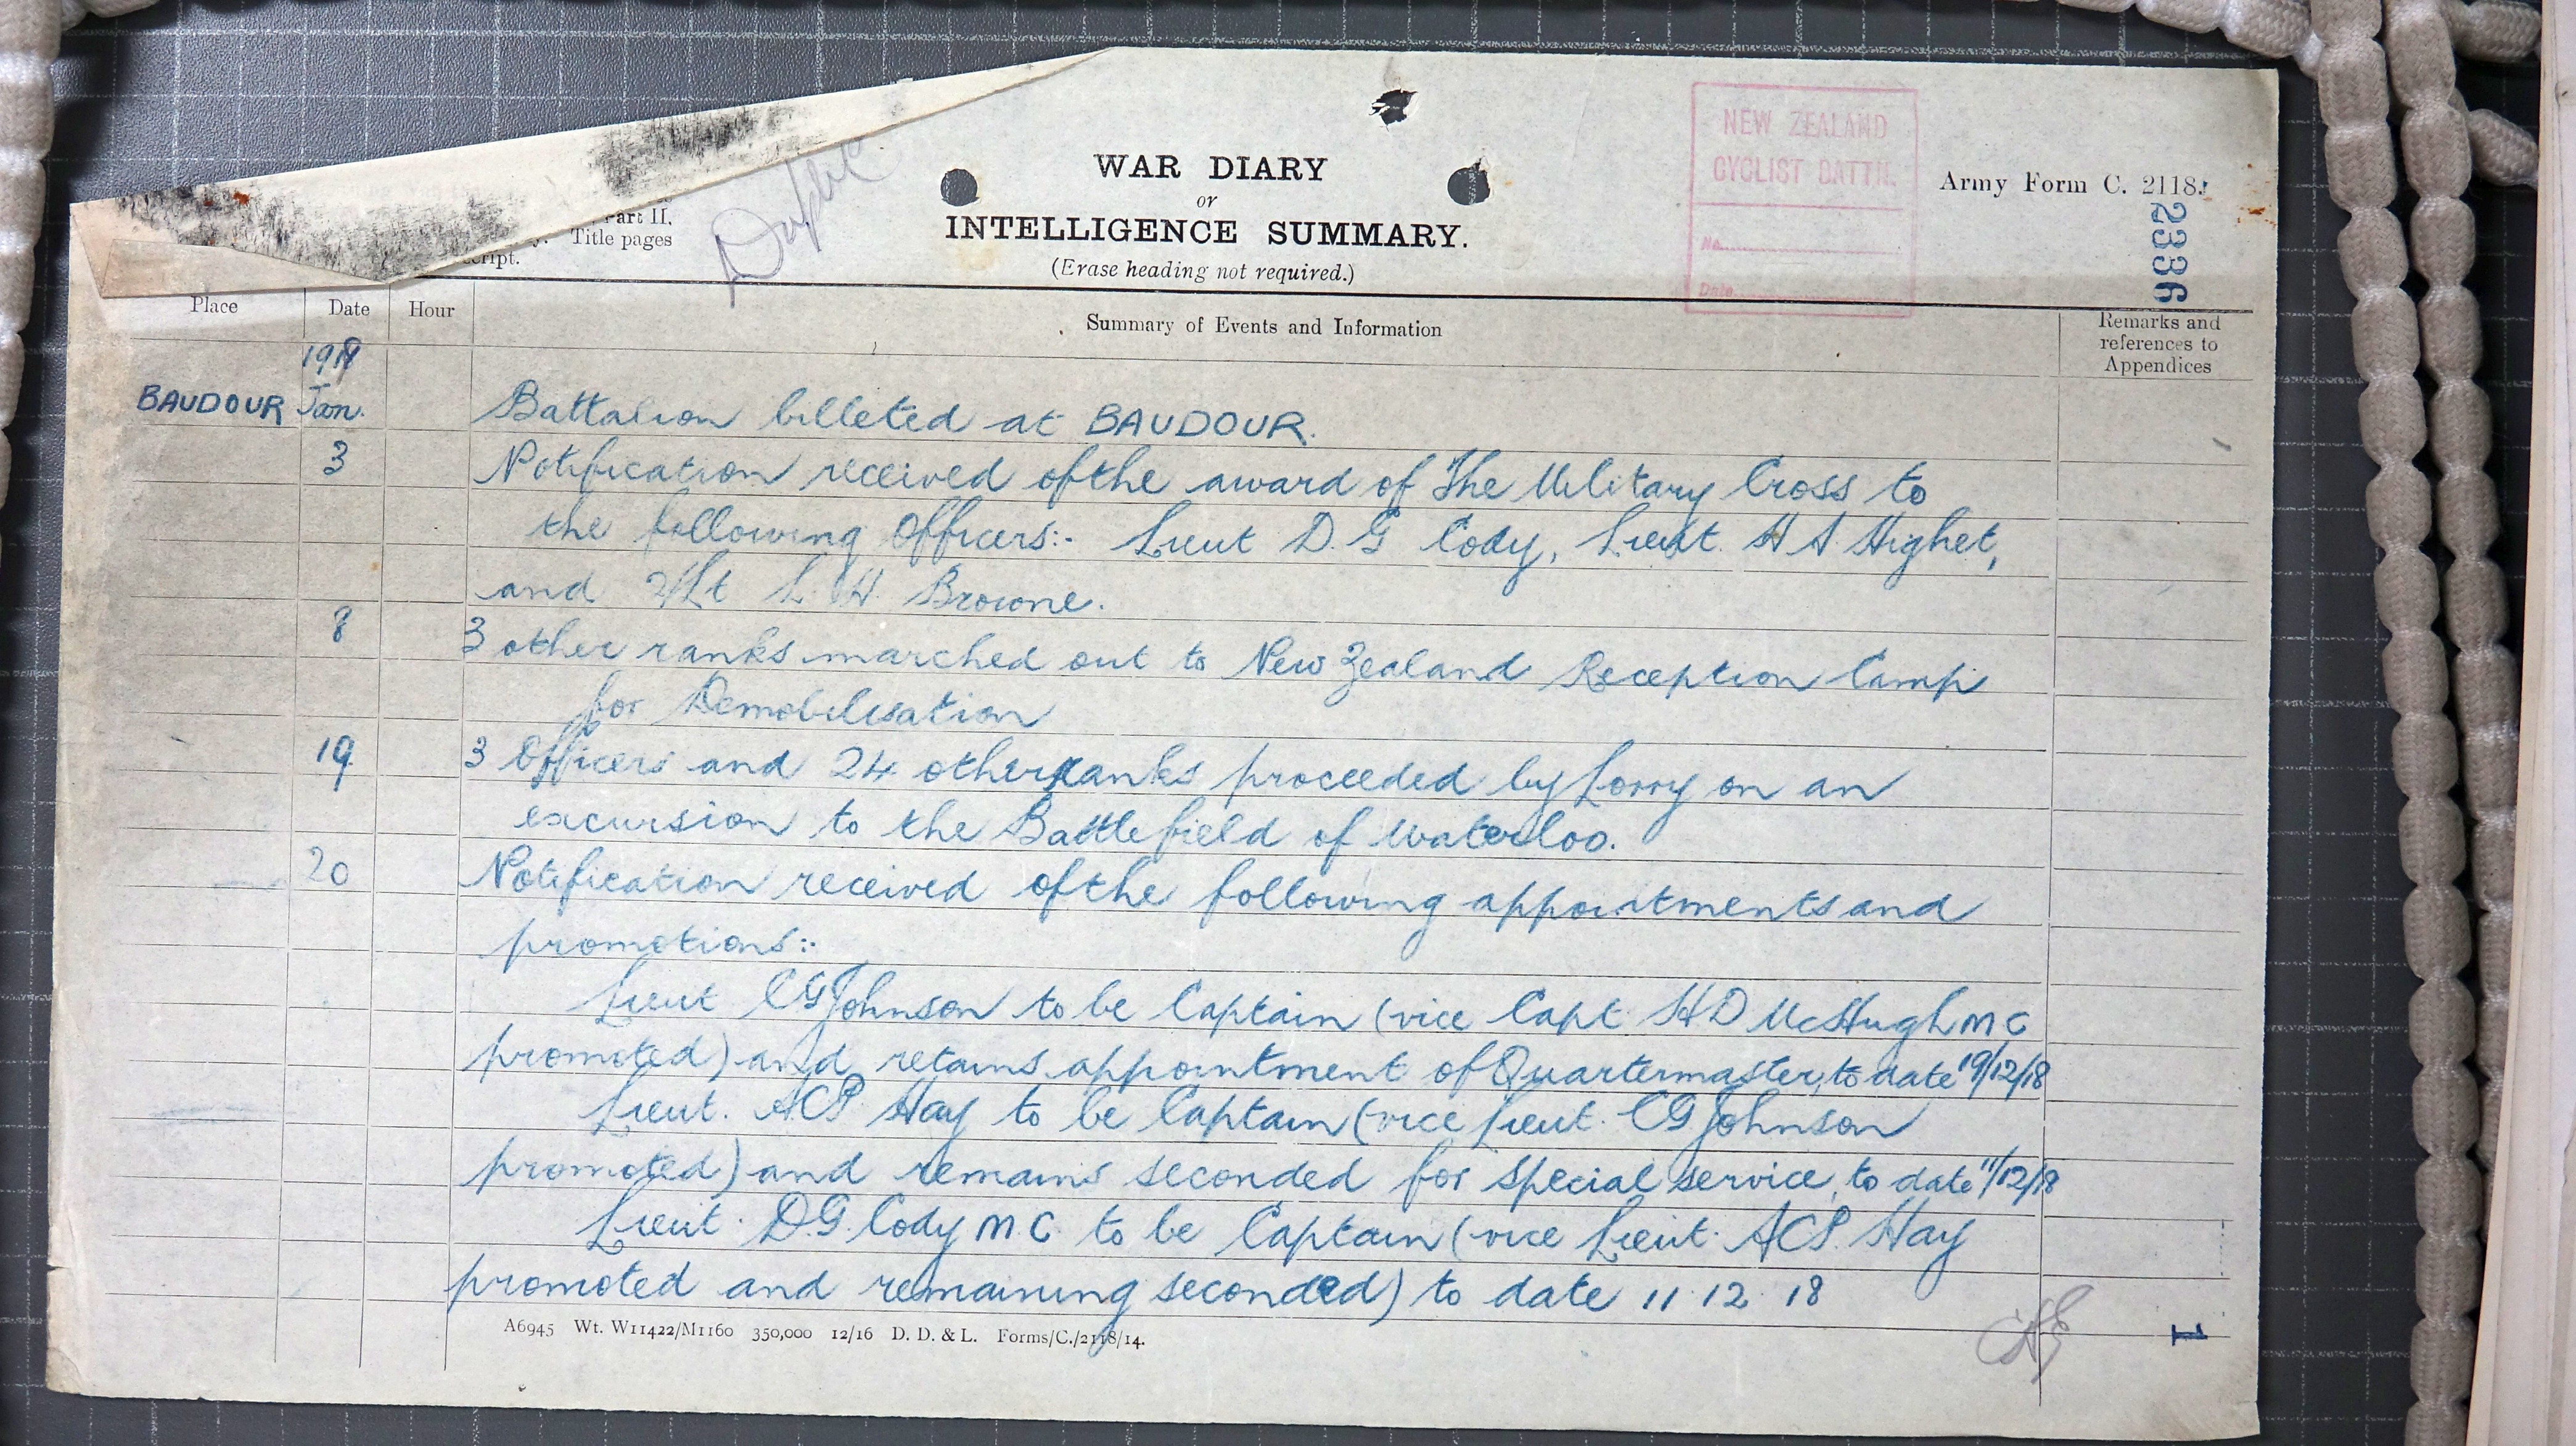 Part II.
Title pages
WAR DIARY
or
INTELLIGENCE SUMMARY.
(Erase heading not required.)
NEW ZEALAND
CYCLIST BATTN.
No.
Date
Army Form C. 2118.
2336
Place Date Hour Summary of Events and Information Remarks and
references to
Appendices
1919
BAUDOUR Jan. Battalion billeted at BAUDOUR.
3 Notification received of the award of The Military Cross to
the following Officers:- Lieut D. G Cody, Lieut. H A Highet,
and 2/Lt L. H. Browne.
8 3 other ranks marched out to New Zealand Reception Camp
for Demobilisation
19 3 Officers and 24 other ranks proceeded by Lorry on an
excursion to the Battlefield of Waterloo.
20 Notification received of the following appointments and
promotions:-
Lieut CG Johnson to be Captain (vice Capt HD McHugh MC
promoted) and retains appointment of Quartermaster, to date 19/12/18
Lieut. ACP Hay to be Captain (vice Lieut. CG Johnson
promoted) and remains seconded for special service, to date 11/12/18
Lieut. D.G. Cody M.C. to be Captain (vice Lieut. ACP. Hay
promoted and remaining seconded) to date 11 12 18
A6945 Wt. W11422/M1160 350,000 12/16 D. D. & L. Forms/C./2118/14.
1